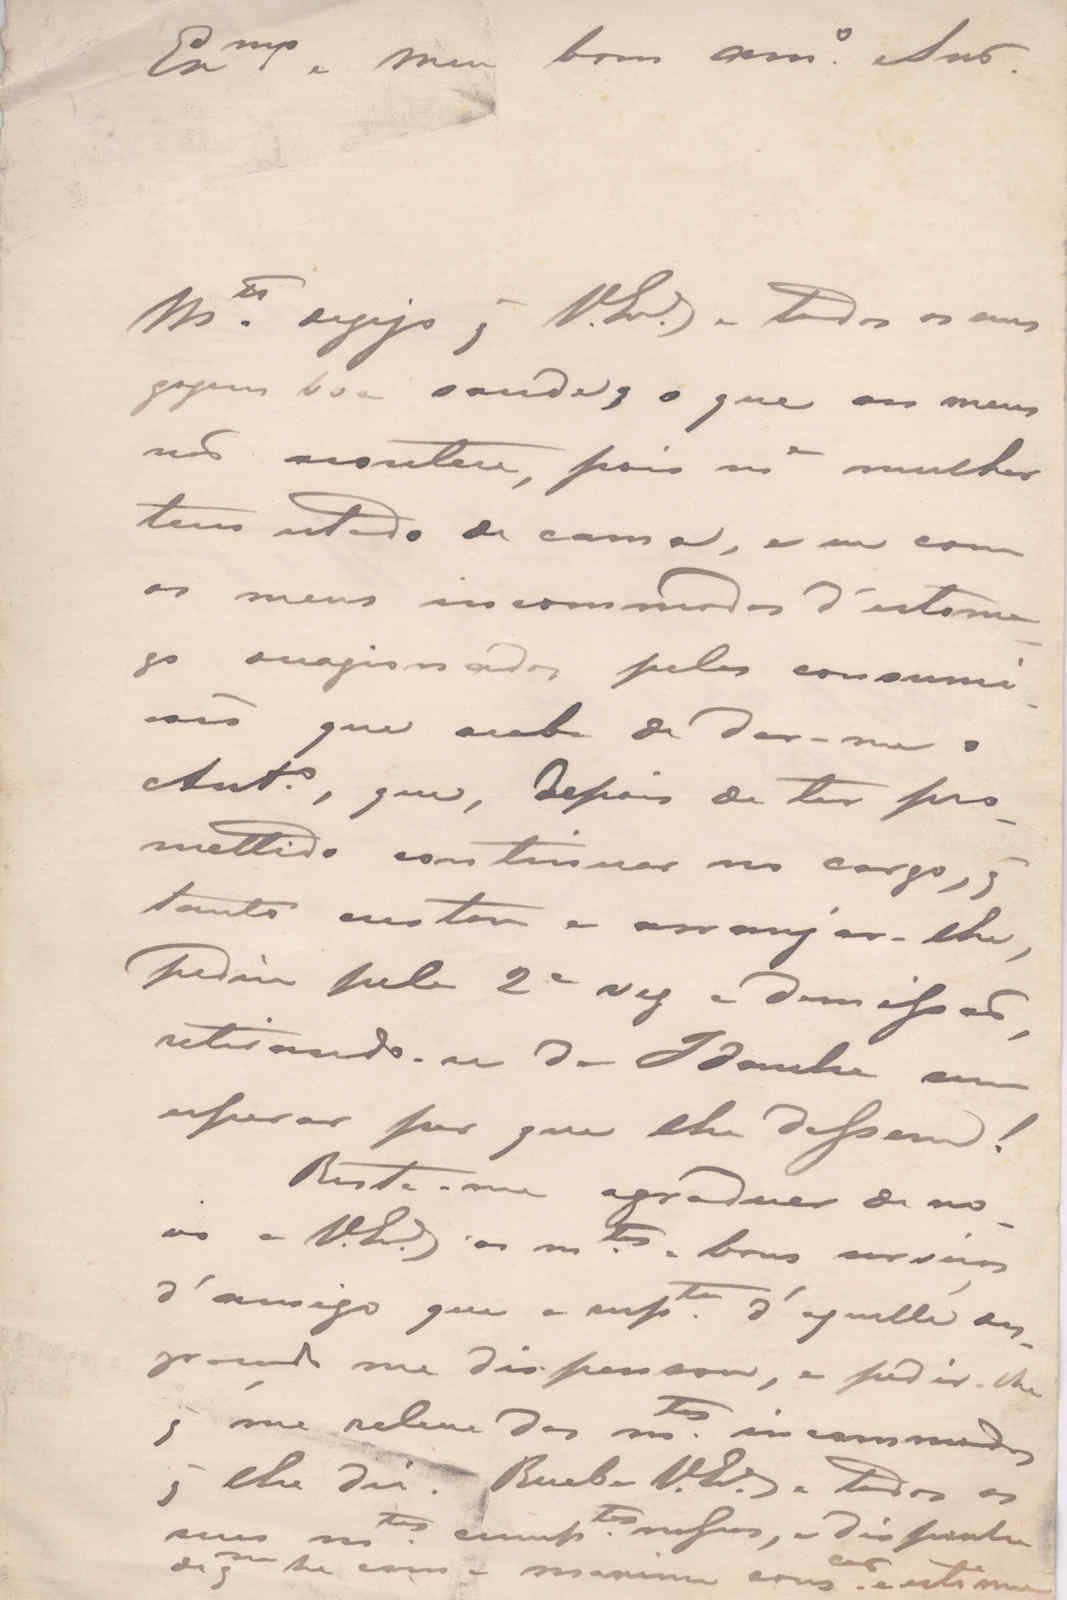 Ex.mo e meu bom am.º e Snr.
M.tos desejo q V. Ex.ª e todos os seus
gozem boa saude, o que aos meus
não acontece, pois m.a mulher
tem estado de cama, e eu com
os meus incommodos d'estoma-
go occasionados pelas consumi-
ções que acaba de dar-me o
Ant.º, que, depois de ter pro-
mettido continuar no cargo, q
tanto custou a arranjar-lhe,
pediu pela 2ª vez a demissão,
retirando-se da Idanha sem
esperar por que lhe dessem!
Resta-me agradecer de no-
vo a V. Ex.ª os m.tos e bons serviços
d'amigo que a resp.to d'aquelle des-
graçado me dispensou, e pedir-lhe
q me releve dos m.tos incommodos
q lhe dei. Receba V. Ex.ª e todos os
seus m.tos cump.tos nossos, e disponha
de q.m he com a maxima cons.cer e estima